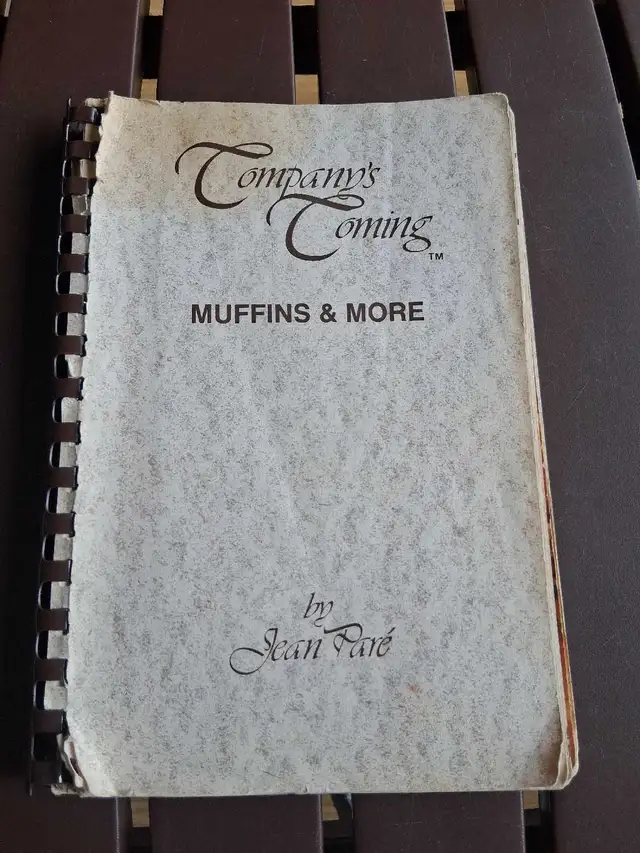 Company's
Coming
TM
MUFFINS & MORE
by
Jean Paré